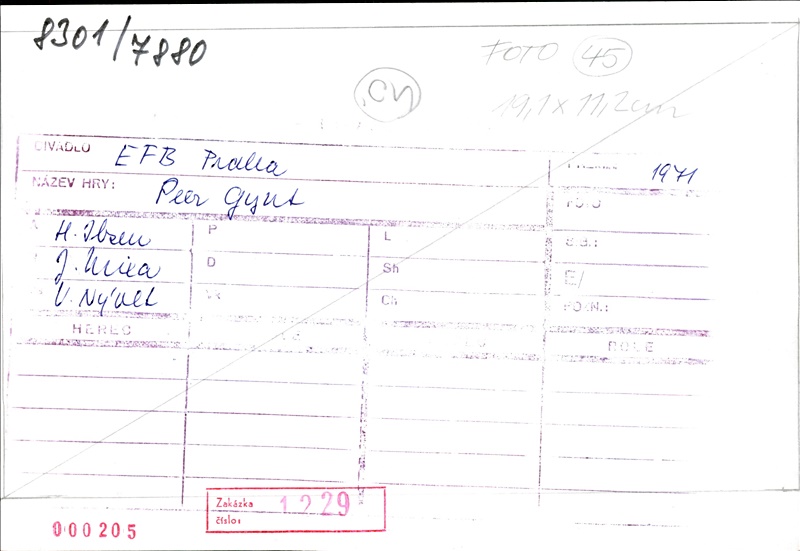 8301/7880
FOTO 45
CN
19,1 x 11,2 cm
DIVADLO EFB Praha
1971
NÁZEV HRY: Peer Gynt
FOTO
H. Ibsen P L
S.B.:
J. D Sh
E/
V. Nývlt Ch
POZN.:
HEREC ROLE
Zakázka číslo: 1229
000205